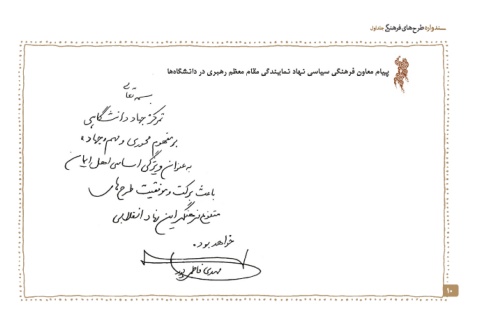 سند واره طرح‌های فرهنگی متداول
پیام معاون فرهنگی سیاسی نهاد نمایندگی مقام معظم رهبری در دانشگاه‌ها
بسمه تعالی
تمرکز جهاد دانشگاهی
بر مفهوم محوری و مهم «جهاد»
به عنوان ویژگی اساسی اهل ایمان
باعث برکت و موفقیت طرح‌های
متنوع فرهنگی این نهاد انقلابی
خواهد بود.
مهدی فاطمی‌پور
۱۰